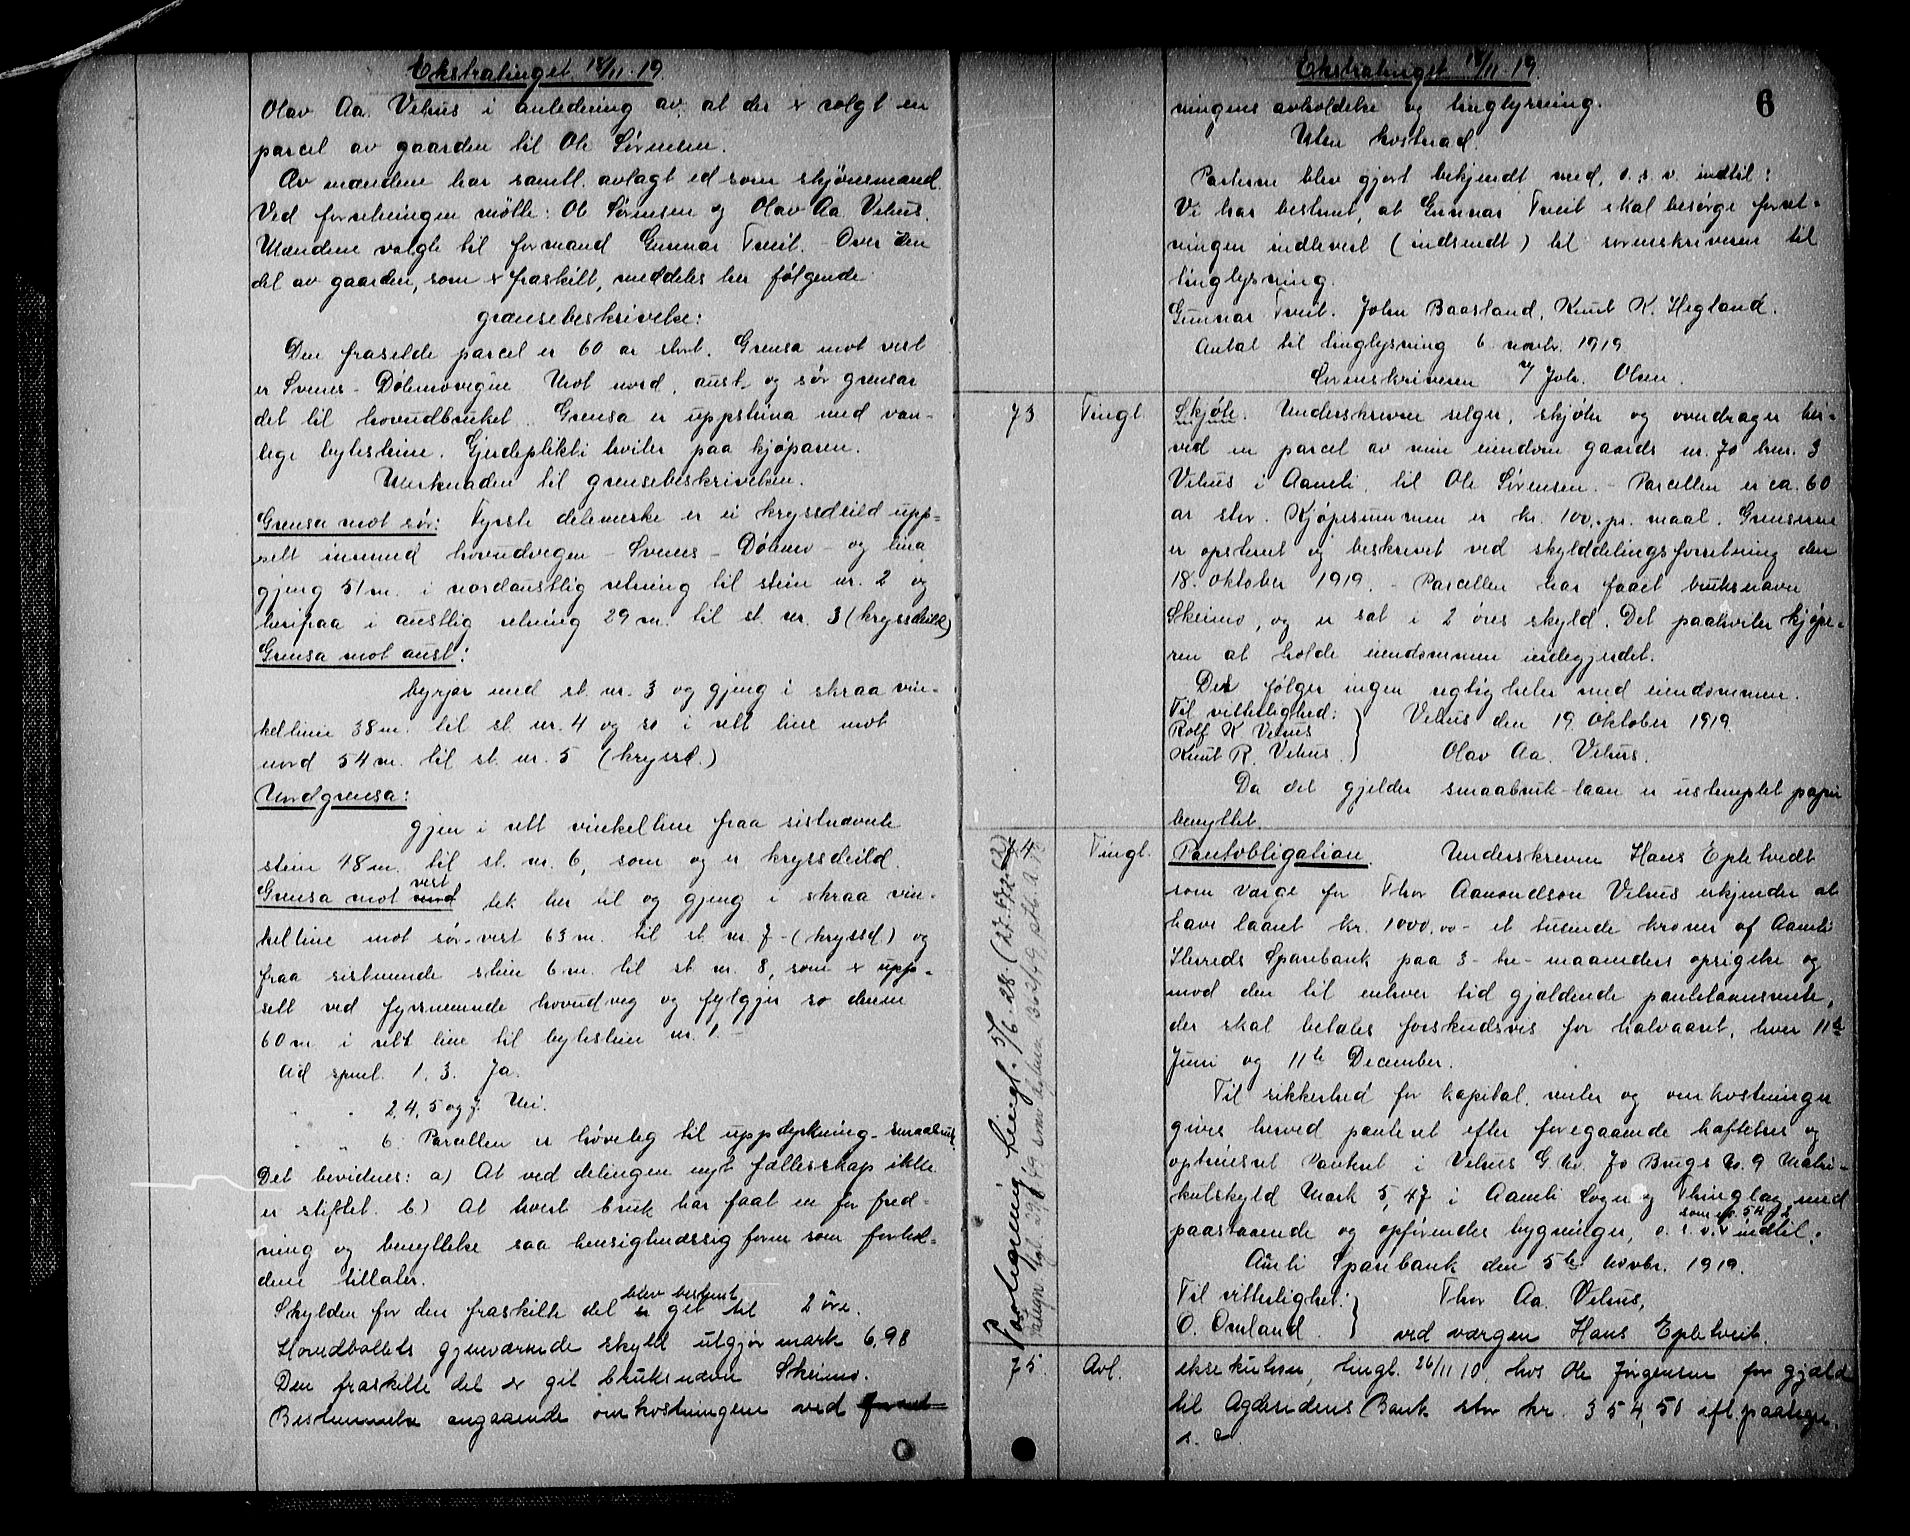 Ekstratinget 18/11. 19.
Olav Aa. Vehus i anledning av, at der er solgt en
parcel av gaarden til Ole Sørensen.
Av mændene har samtl. avlagt ed som skjönsmænd.
Ved forretningen mötte: Ole Sørensen og Olav Aa. Vehus.
Mændene valgte til formand Gunnar Tveit. - Over den
del av gaarden, som er fraskilt, meddeles her følgende
grænsebeskrivelse:
Den fraskilde parcel er 60 ar stort. Grensa mot vest
er Svenes - Dölemovegen. Mot nord, aust og sør grensar
det til hovudbruket. Grensa er uppsteina med van-
lege bytesteine. Gjerdeplikti hviler paa kjøparen.
Merknaden til grensebeskrivelsen.
Grensa mot sør: Fyrste delemerke er ei kryssdeild upp-
sett innmed hovudvegen - Svenes - Dölemo - og lina
gjeng 51 m. i nordaustlig retning til stein nr. 2 og
herifraa i austlig retning 29 m. til st. nr. 3 (kryssdeild)
Grensa mot aust:
byrjar med st. nr. 3 og gjeng i skraa vin-
kelline 38 m. til st. nr. 4 og so i rett line mot
nord 54 m. til st. nr. 5 (kryssd.)
Nordgrensa:
gjen i rett vinkelline fraa sistnævnte
stein 48 m. til st. nr. 6, som og er kryssdeild.
Grensa mot nord vest tek her til og gjeng i skraa vin-
kelline mot sør-vest 63 m. til st. nr 7 - (kryssd.) og
fraa sistnemnde stein 6 m. til st. nr. 8, som er upp-
sett ved fyrnemnde hovudveg og fylgjer so denne
60 m i rett line til bytestein nr. 1. -
Ad spml. 1, 3. Ja.
" " 2, 4, 5 og 7. Nei.
" " 6. Parcellen er høveleg til uppdyrkning - smaabruk.
Det bevidnes: a) At ved delingen nyt fællesskap ikke
er stiftet. b) At hvert bruk har faat en for fred-
ning og benyttelse saa hensigtmæssig form som forhol-
dene tillater.
Skylden for den fraskilte del er blev bestemt get til 2 öre.
Hovedbøllets gjenværende skyld utgjør mark 6,98
Den fraskilte del er git bruksnavn Skeimo.
Bestemmelse angaaende omkostningene ved forret-
Ekstratinget 18/11. 19.
6
ningens avholdelse og tinglysning.
Uten kostnad.
Parterne blev gjort bekjendt med, o. s. v. indtil:
Vi har bestemt, at Gunnar Tveit skal besørge forret-
ningen indlevert (indsendt) til sorenskriveren til
tinglysning.
Gunnar Tveit. John Baasland, Knut K. Hegland.
Antat til tinglysning 6 novbr. 1919
Sorenskriveren Joh. Olsen.
73 Tingl. Skjøte. Underskrevne selger, skjøter og overdrager her-
ved en parcel av min eiendom gaards nr. 70 bnr. 3
Vehus i Aamli, til Ole Sørensen. - Parcellen er ca. 60
ar stor. Kjøpesummen er kr. 100,- pr. maal. Grenserne
er opstenet og beskrevet ved skylddelingsforretning den
18. oktober 1919. - Parcellen har faaet bruksnavn
Skeimo, og er sat i 2 øres skyld. Det paahviler kjøpe-
ren at holde eiendommen indegjerdet.
Det følger ingen rettigheter med eiendommen.
Til vitterlighed: Vehus den 19 oktober 1919.
Rolf K Vehus
Knut R. Vehus. Olav Aa. Vehus.
Da det gjelder smaabruk-laan er ustemplet papir
benyttet.
74 Tingl. Pantobligation. Underskrevne Hans Epletvedt
som værge for Thor Aanondson Vehus erkjender at
have laant kr. 1000,00 - et tusinde kroner af Aamli
Herreds Sparebank paa 3 - tre - maaneders opsigelse og
mod den til enhver tid gjældende pantelaansrente,
der skal betales forskudsvis for halvaaret, hver 11te
Juni og 11te December.
Til sikkerhed for kapital, renter og omkostninger
gives herved panteret efter foregaaende hæftelser og
optrinsret Pantret i Vehus G. No. 70 Brugs No. 9 Matri-
kulskyld Mark 5,47 i Aamli Sogn og Thinglag med
paastaaende og opførendes bygninger, o. s. v. som nr. 5472 indtil:
Åmli Sparebank den 5te Novbr. 1919.
Til vitterlighet: Thor Aa. Vehus,
O. Omland. ved værgen Hans Epletveit.
Paategning tingl. 5/6. 28.
75. Avl. eksekution, tingl. 26/11 10, hos Ole Jörgensen for gjæld
til Agdesidens Bank stor kr. 354,51 efl. paategn.
s. d.